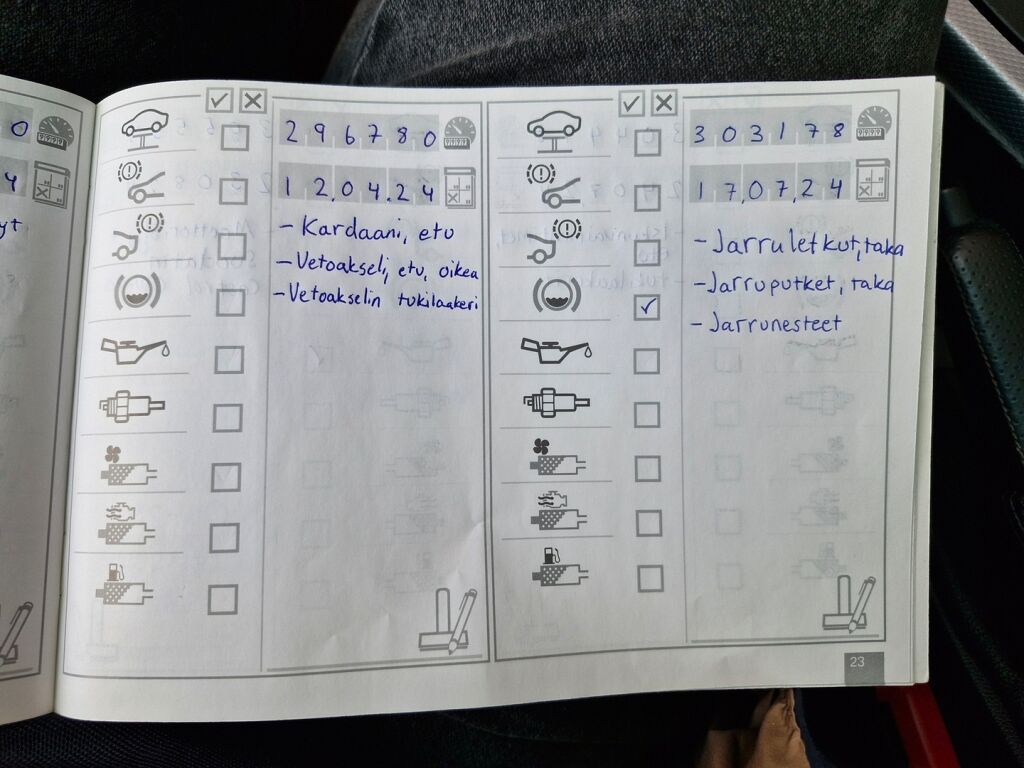 0
4
yt
296780
12.04.24
- Kardaani, etu
- Vetoakseli, etu, oikea
- Vetoakselin tukilaakeri
303178
17.07.24
- Jarruletkut, taka
- Jarruputket, taka
- Jarrunesteet
23